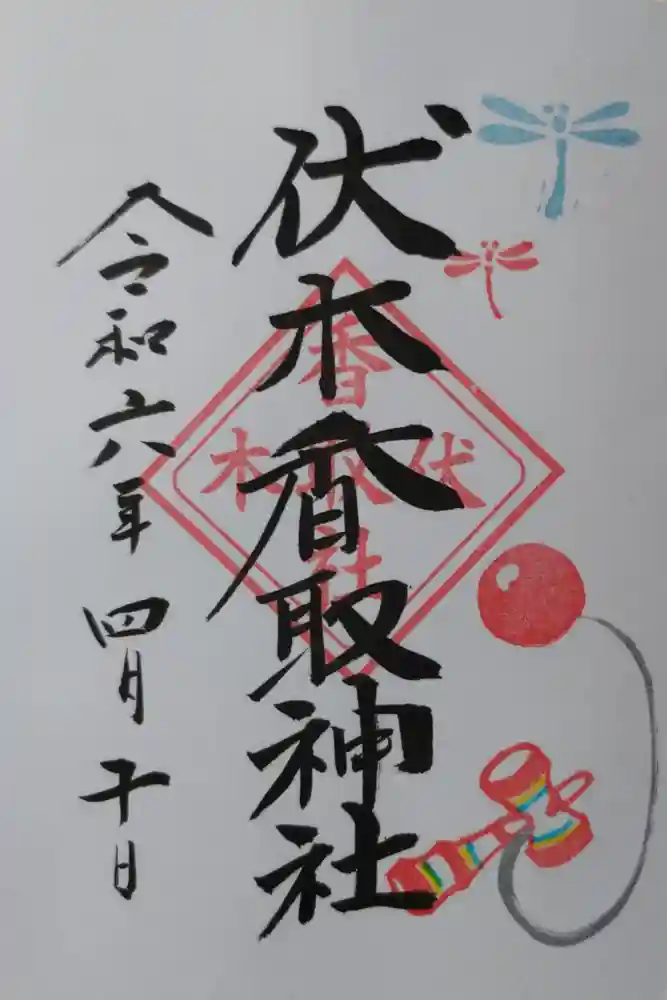 伏木香取神社
香
伏取木
社
令和六年四月十日